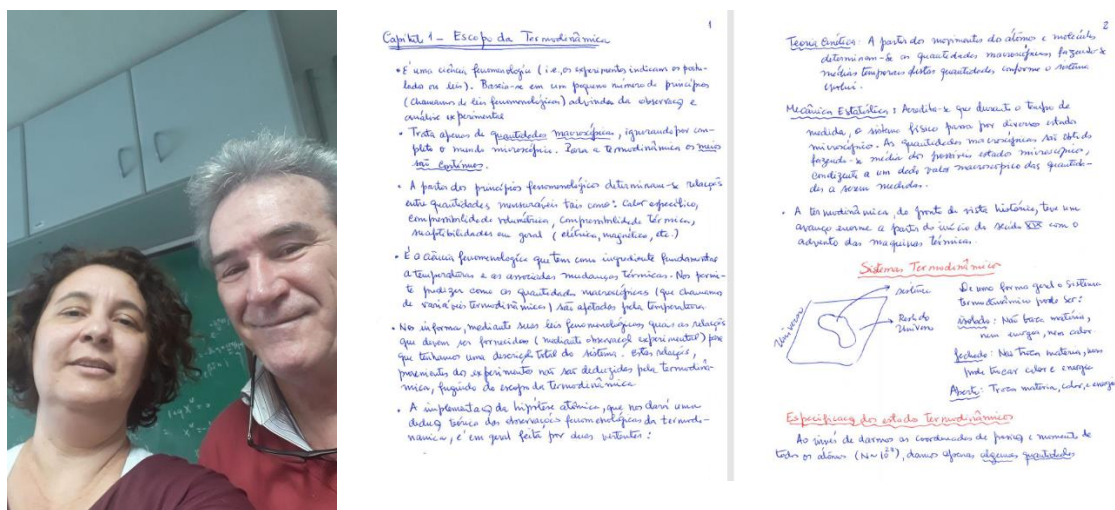 1
Capítulo 1 – Escopo da Termodinâmica
• É uma ciência fenomenológica (i.e., os experimentos indicam os postu-
lados ou leis). Baseia-se em um pequeno número de princípios
(chamamos de leis fenomenológicas) advindos da observação e
análise experimental
• Trata apenas de quantidades macroscópicas, ignorando por com-
pleto o mundo microscópico. Para a termodinâmica os meios
são contínuos.
• A partir dos princípios fenomenológicos determinam-se relações
entre quantidades mensuráveis tais como: calor específico,
compressibilidade volumétrica, compressibilidade térmica,
susceptibilidades em geral (elétrica, magnética, etc.)
• É a ciência fenomenológica que tem como ingrediente fundamental
a temperatura e as associadas mudanças térmicas. Nos permi-
te predizer como as quantidades macroscópicas (que chamamos
de variáveis termodinâmicas) são afetadas pela temperatura
• Nos informa, mediante suas leis fenomenológicas, quais as relações
que devem ser fornecidas (mediante observação experimental) para
que tenhamos uma descrição total do sistema. Estas relações,
provenientes do experimento não são deduzidas pela termodinâ-
mica, fugindo do escopo da termodinâmica
• A implementação da hipótese atômica, que nos dará uma
dedução teórica das observações fenomenológicas da termodi-
nâmica, é em geral feita por duas vertentes:
2
Teoria Cinética: A partir dos movimentos do átomos e moléculas
determinam-se as quantidades macroscópicas fazendo-se
médias temporais destas quantidades conforme o sistema
evolui.
Mecânica Estatística: Acredita-se que durante o tempo de
medida, o sistema físico passa por diversos estados
microscópicos. As quantidades macroscópicas são obtidas
fazendo-se média dos possíveis estados microscópicos,
condizente a um dado valor macroscópico das quantida-
des a serem medidas.
• A termodinâmica, do ponto de vista histórico, teve um
avanço enorme a partir do início do século XIX com o
advento das maquinas térmicas.
Sistemas Termodinâmicos
Universo
sistema
Resto do
Universo
De uma forma geral o sistema
termodinâmico pode ser:
isolado: Não troca matéria,
nem energia, nem calor.
fechado: Não troca matéria, mas
pode trocar calor e energia
Aberto: Troca matéria, calor, e energia
Especificação do estado Termodinâmico
Ao invés de darmos as coordenadas de posição e momento de
todos os átomos (N~10²³), damos apenas algumas quantidades